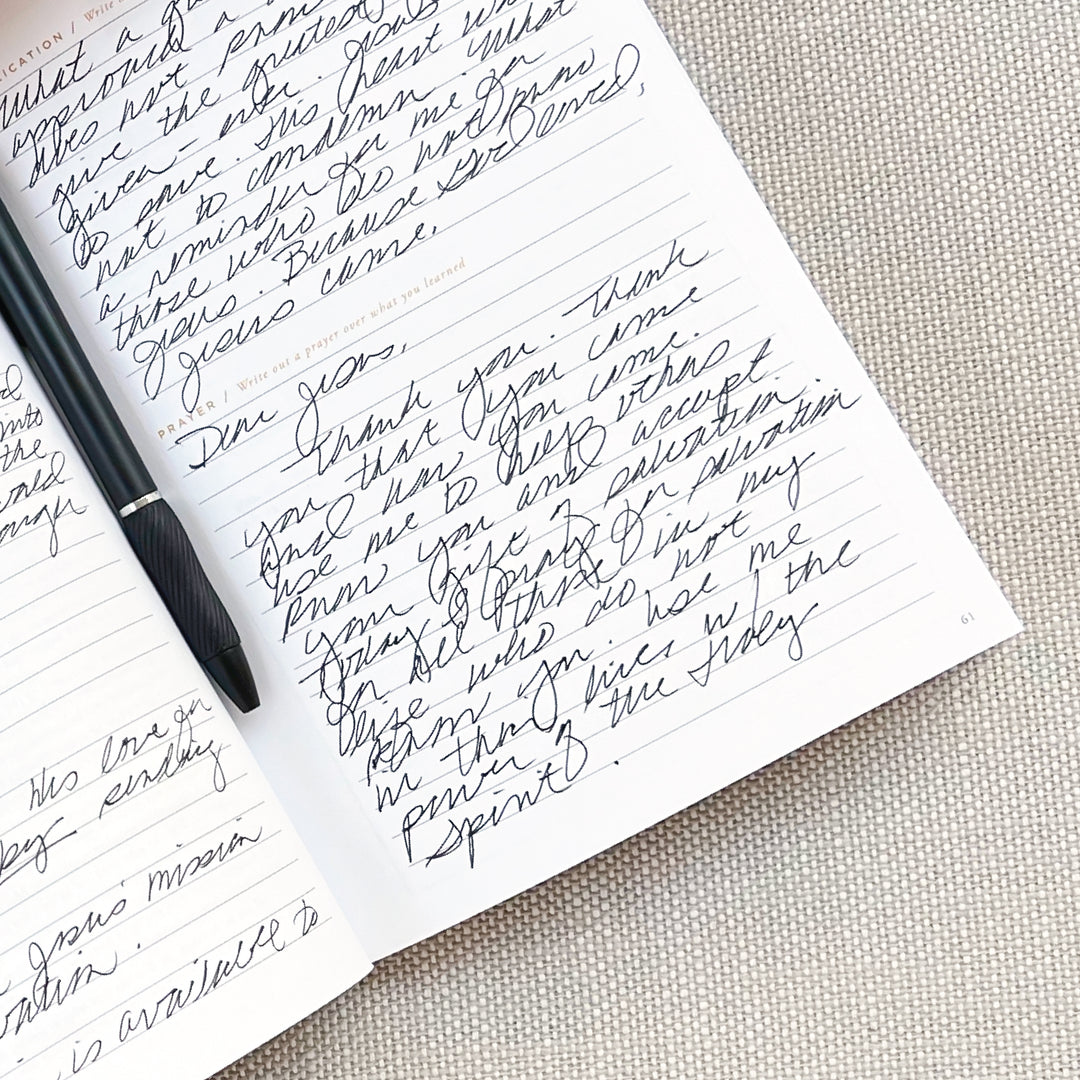 LICATION / Write
What a
approach a
does not
give the greatest
given - ever. Jesus
to save. His heart was
not to condemn. What
a reminder for me for
those who do not know
Jesus. Because God loved,
Jesus came.
PRAYER / Write out a prayer over what you learned
Dear Jesus,
Thank you. Thank
you that you came
and how you came.
Use me to help others
know you and accept
your gift of salvation.
Today I pray for salvation
for all those in my
life who do not
know you. Use me
in their lives w/ the
power of the Holy
Spirit.
61
into
the
world
through
His love for
sending
Jesus' mission
is available to